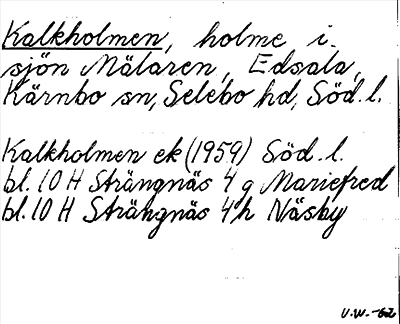 Kalkholmen, holme i
sjön Mälaren, Edsala,
Kärnbo sn, Selebo hd, Söd. l.
Kalkholmen ek (1959) Söd. l.
bl. 10 H Strängnäs 4 g Mariefred
bl. 10 H Strängnäs 4 h Näsby
U.W.-62